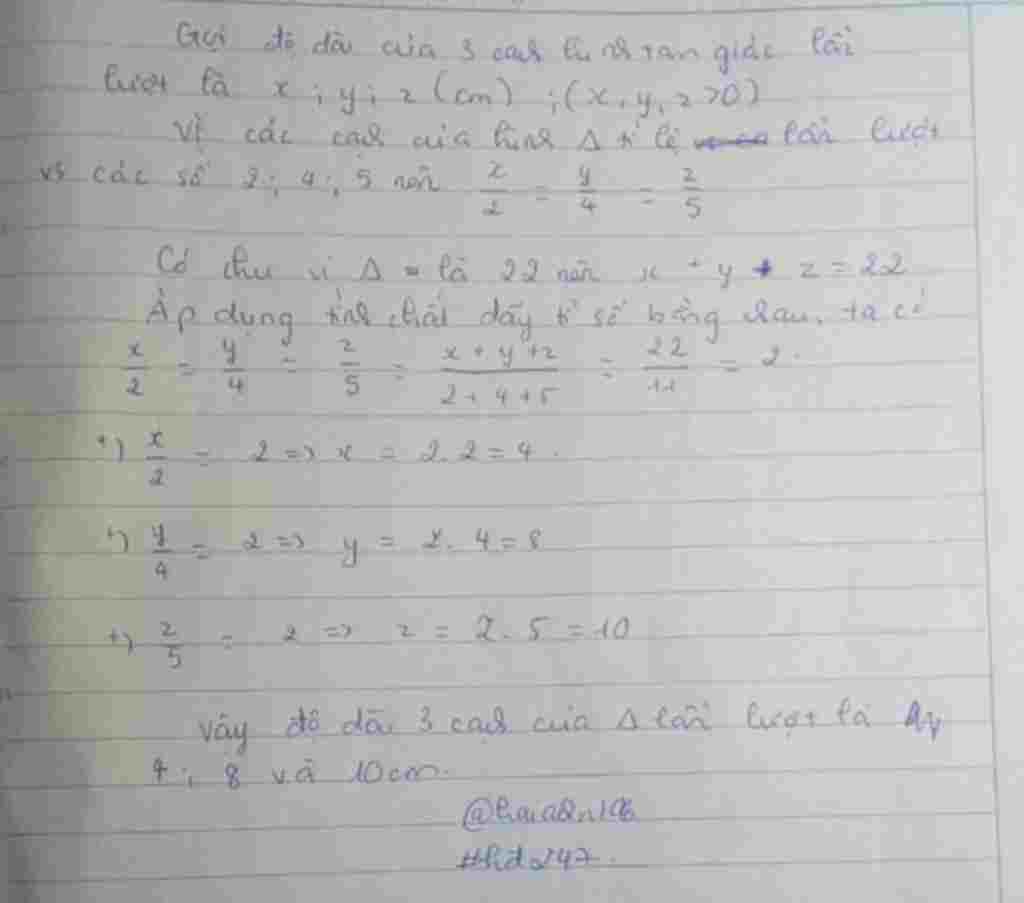 Gọi độ dài của 3 cạnh hình tam giác lần
lượt là x ; y ; z (cm) ; (x, y, z >0)
Vì các cạnh của hình Δ tỉ lệ lần lượt
vs các số 2 ; 4 ; 5 nên x/2 = y/4 = z/5
Có chu vi Δ là 22 nên x + y + z = 22
Áp dụng tính chất dãy tỉ số bằng nhau, ta có
x/2 = y/4 = z/5 = (x + y + z)/(2 + 4 + 5) = 22/11 = 2.
+) x/2 = 2 => x = 2.2 = 4.
+) y/4 = 2 => y = 2.4 = 8
+) z/5 = 2 => z = 2.5 = 10
Vậy độ dài 3 cạnh của Δ lần lượt là
4 ; 8 và 10cm.